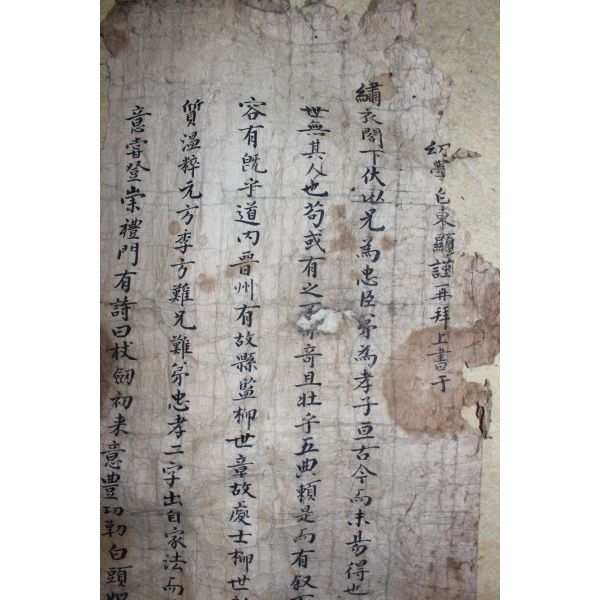 幼學白東顯謹再拜上書于
繡衣閤下伏以兄爲忠臣弟為孝子亘古今而未易得也
世無其人也苟或有之 奇且壯乎五典賴是而有叙
容有旣乎道內晋州有故縣監柳世章故處士柳世
質溫粹元方季方難兄難弟忠孝二字出自家法而
意嘗登崇禮門有詩曰杖劒初来意豊功勒白頭